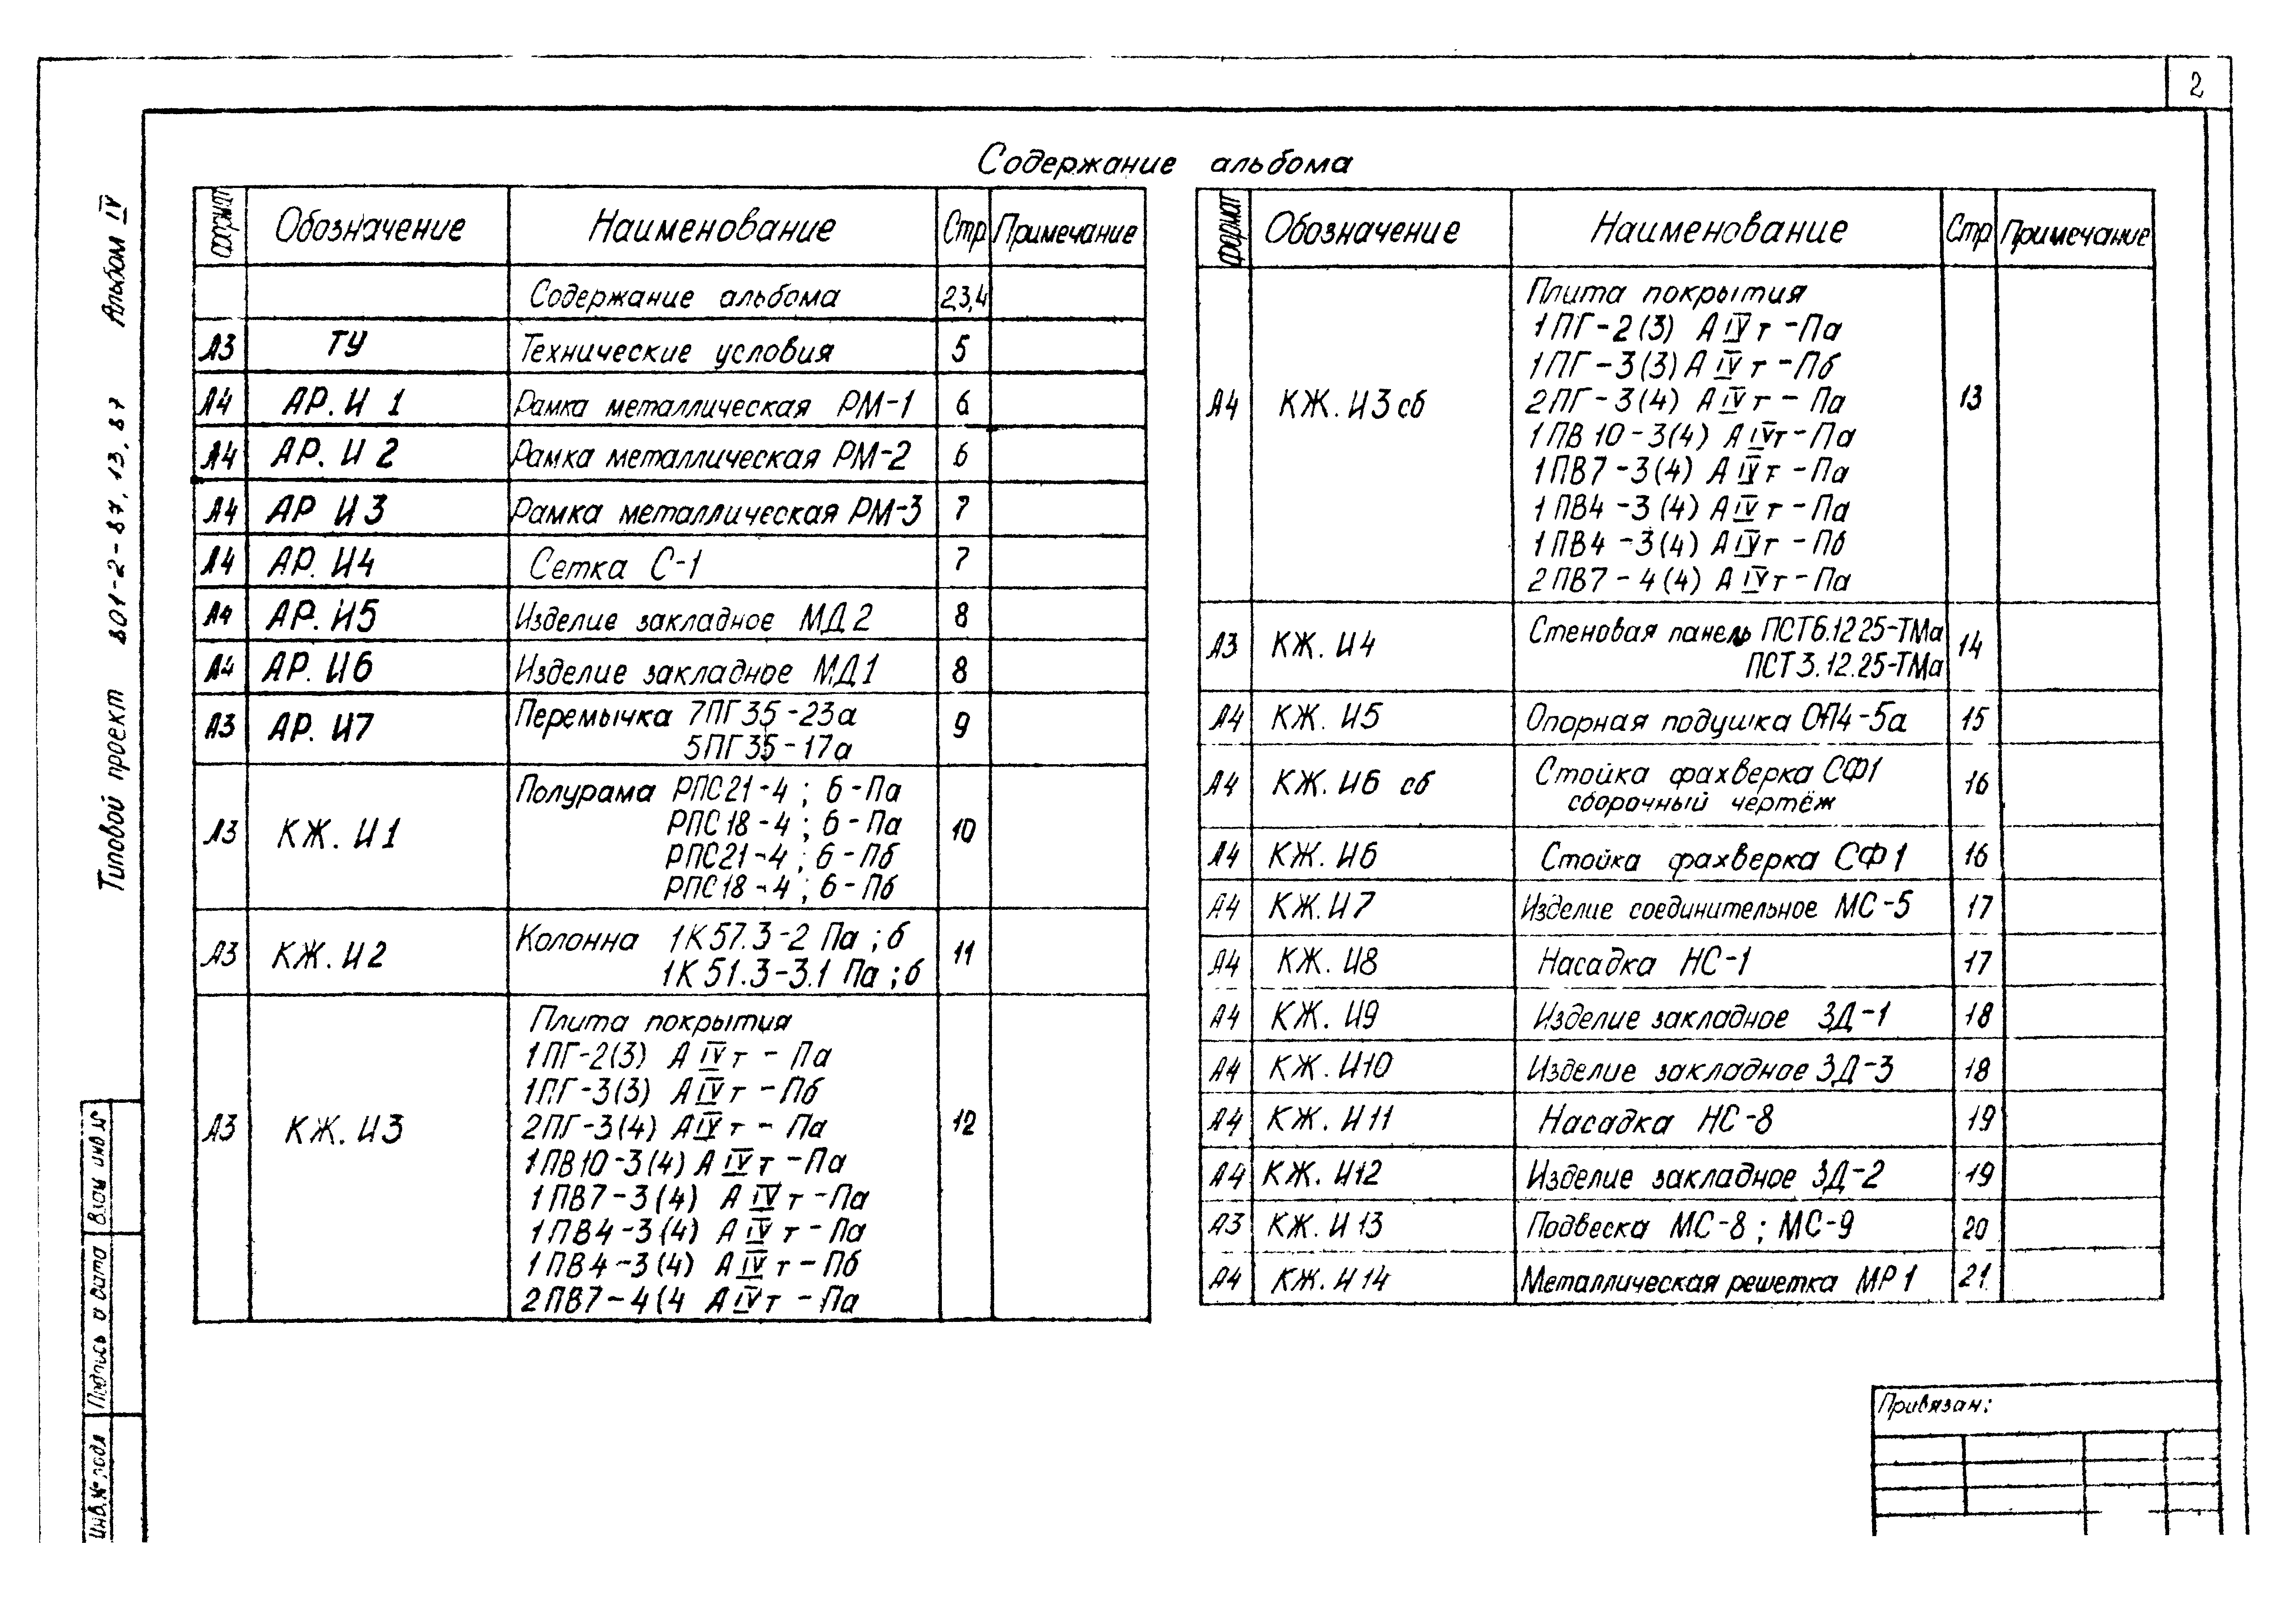 2
Содержание альбома
Типовой проект 801-2-87.13.87 Альбом IV
формат Обозначение Наименование Стр Примечание
Содержание альбома 2,3,4
А3 ТУ Технические условия 5
А4 АР. И 1 Рамка металлическая РМ-1 6
А4 АР. И 2 Рамка металлическая РМ-2 6
А4 АР И 3 Рамка металлическая РМ-3 7
А4 АР. И4 Сетка С-1 7
А4 АР. И5 Изделие закладное МД2 8
А4 АР. И6 Изделие закладное МД1 8
А3 АР. И7 Перемычка 7ПГ35-23а 9
5ПГ35-17а
А3 КЖ. И1 Полурама РПС21-4; 6-Па 10
РПС18-4; 6-Па
РПС21-4; 6-Пб
РПС18-4; 6-Пб
А3 КЖ. И2 Колонна 1К57.3-2 Па; б 11
1К51.3-3.1 Па; б
А3 КЖ. И3 Плита покрытия 12
1ПГ-2(3) А IV т - Па
1ПГ-3(3) А IV т - Пб
2ПГ-3(4) А IV т - Па
1ПВ10-3(4) А IV т - Па
1ПВ7-3(4) А IV т - Па
1ПВ4-3(4) А IV т - Па
1ПВ4-3(4) А IV т - Пб
2ПВ7-4(4 А IV т - Па
формат Обозначение Наименование Стр Примечание
А4 КЖ. И3 сб Плита покрытия 13
1ПГ-2(3) А IV т - Па
1ПГ-3(3) А IV т - Пб
2ПГ-3(4) А IV т - Па
1ПВ10-3(4) А IV т - Па
1ПВ7-3(4) А IV т - Па
1ПВ4-3(4) А IV т - Па
1ПВ4-3(4) А IV т - Пб
2ПВ7-4(4) А IV т - Па
А3 КЖ. И4 Стеновая панель ПСТ6.12 25-ТМа 14
ПСТ3.12.25-ТМа
А4 КЖ. И5 Опорная подушка ОП4-5а 15
А4 КЖ. И6 сб Стойка фахверка СФ1 16
сборочный чертёж
А4 КЖ. И6 Стойка фахверка СФ1 16
А4 КЖ. И7 Изделие соединительное МС-5 17
А4 КЖ. И8 Насадка НС-1 17
А4 КЖ. И9 Изделие закладное ЗД-1 18
А4 КЖ. И10 Изделие закладное ЗД-3 18
А4 КЖ. И11 Насадка НС-8 19
А4 КЖ. И12 Изделие закладное ЗД-2 19
А3 КЖ. И 13 Подвеска МС-8; МС-9 20
А4 КЖ. И 14 Металлическая решетка МР1 21
Привязан:
Взам инв №
Подпись и дата
Инв. № подл